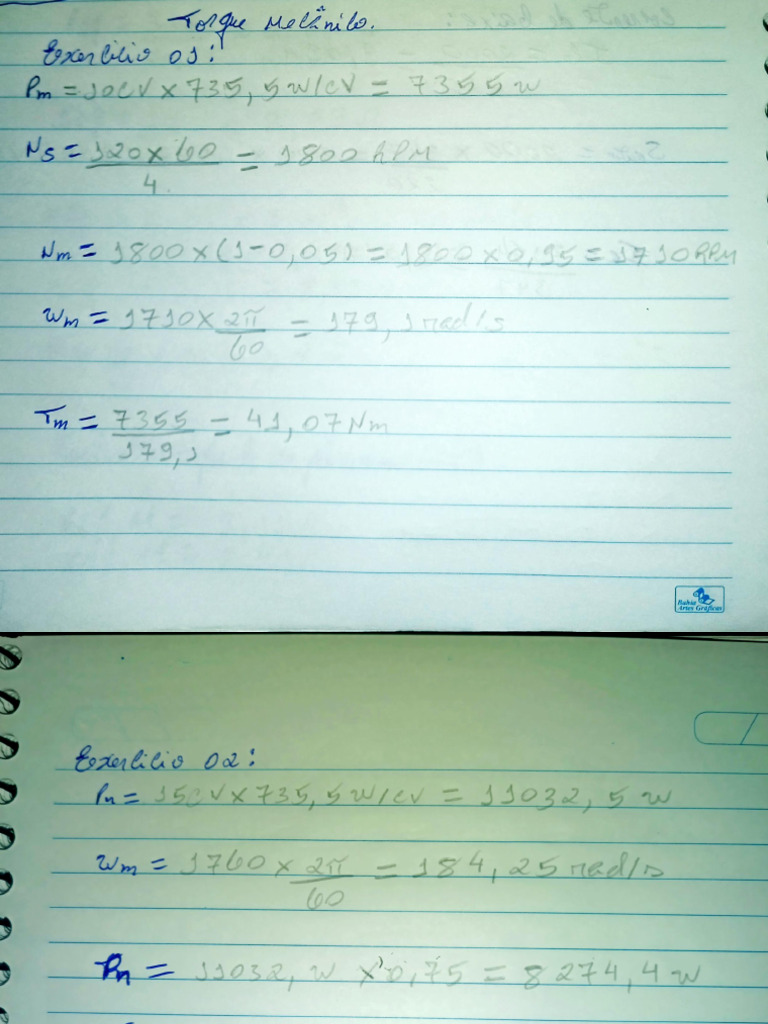 Torque Mecânico.
Exercício 01:
Pm = 10CV x 735,5 W/CV = 7355 W
Ns = 120 x 60 / 4 = 1800 RPM
Nm = 1800 x (1-0,05) = 1800 x 0,95 = 1710 RPM
wm = 1710 x 2π / 60 = 179,1 rad/s
Tm = 7355 / 179,1 = 41,07 Nm
Rabisc
Artes Gráficas
Exercício 02:
Pn = 15CV x 735,5 W/CV = 11032,5 W
wm = 1760 x 2π / 60 = 184,25 rad/s
Pn = 11032, W x 0,75 = 8274,4 W